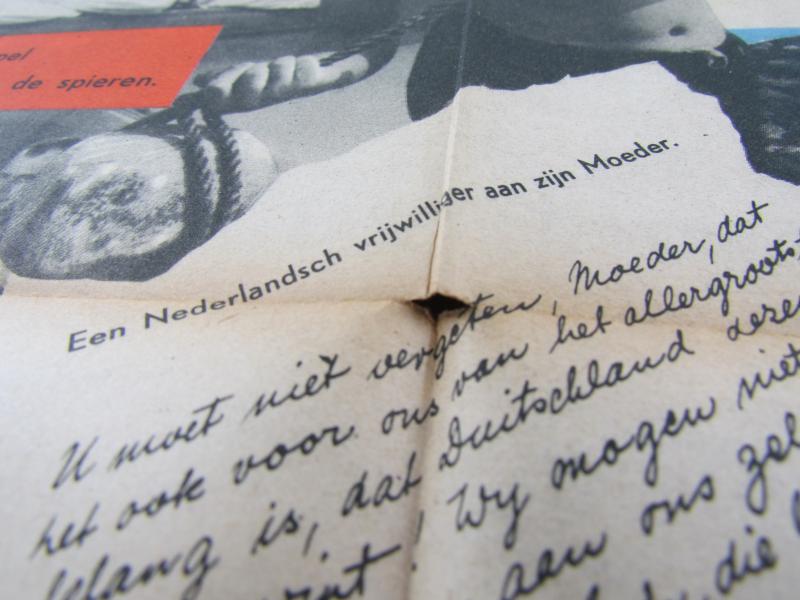 de spieren.
Een Nederlandsch vrijwilliger aan zijn Moeder.
U moet niet vergeten, Moeder, dat
het ook voor ons van het allergrootst
belang is, dat Duitschland
wint! Wij mogen niet
aan ons
die